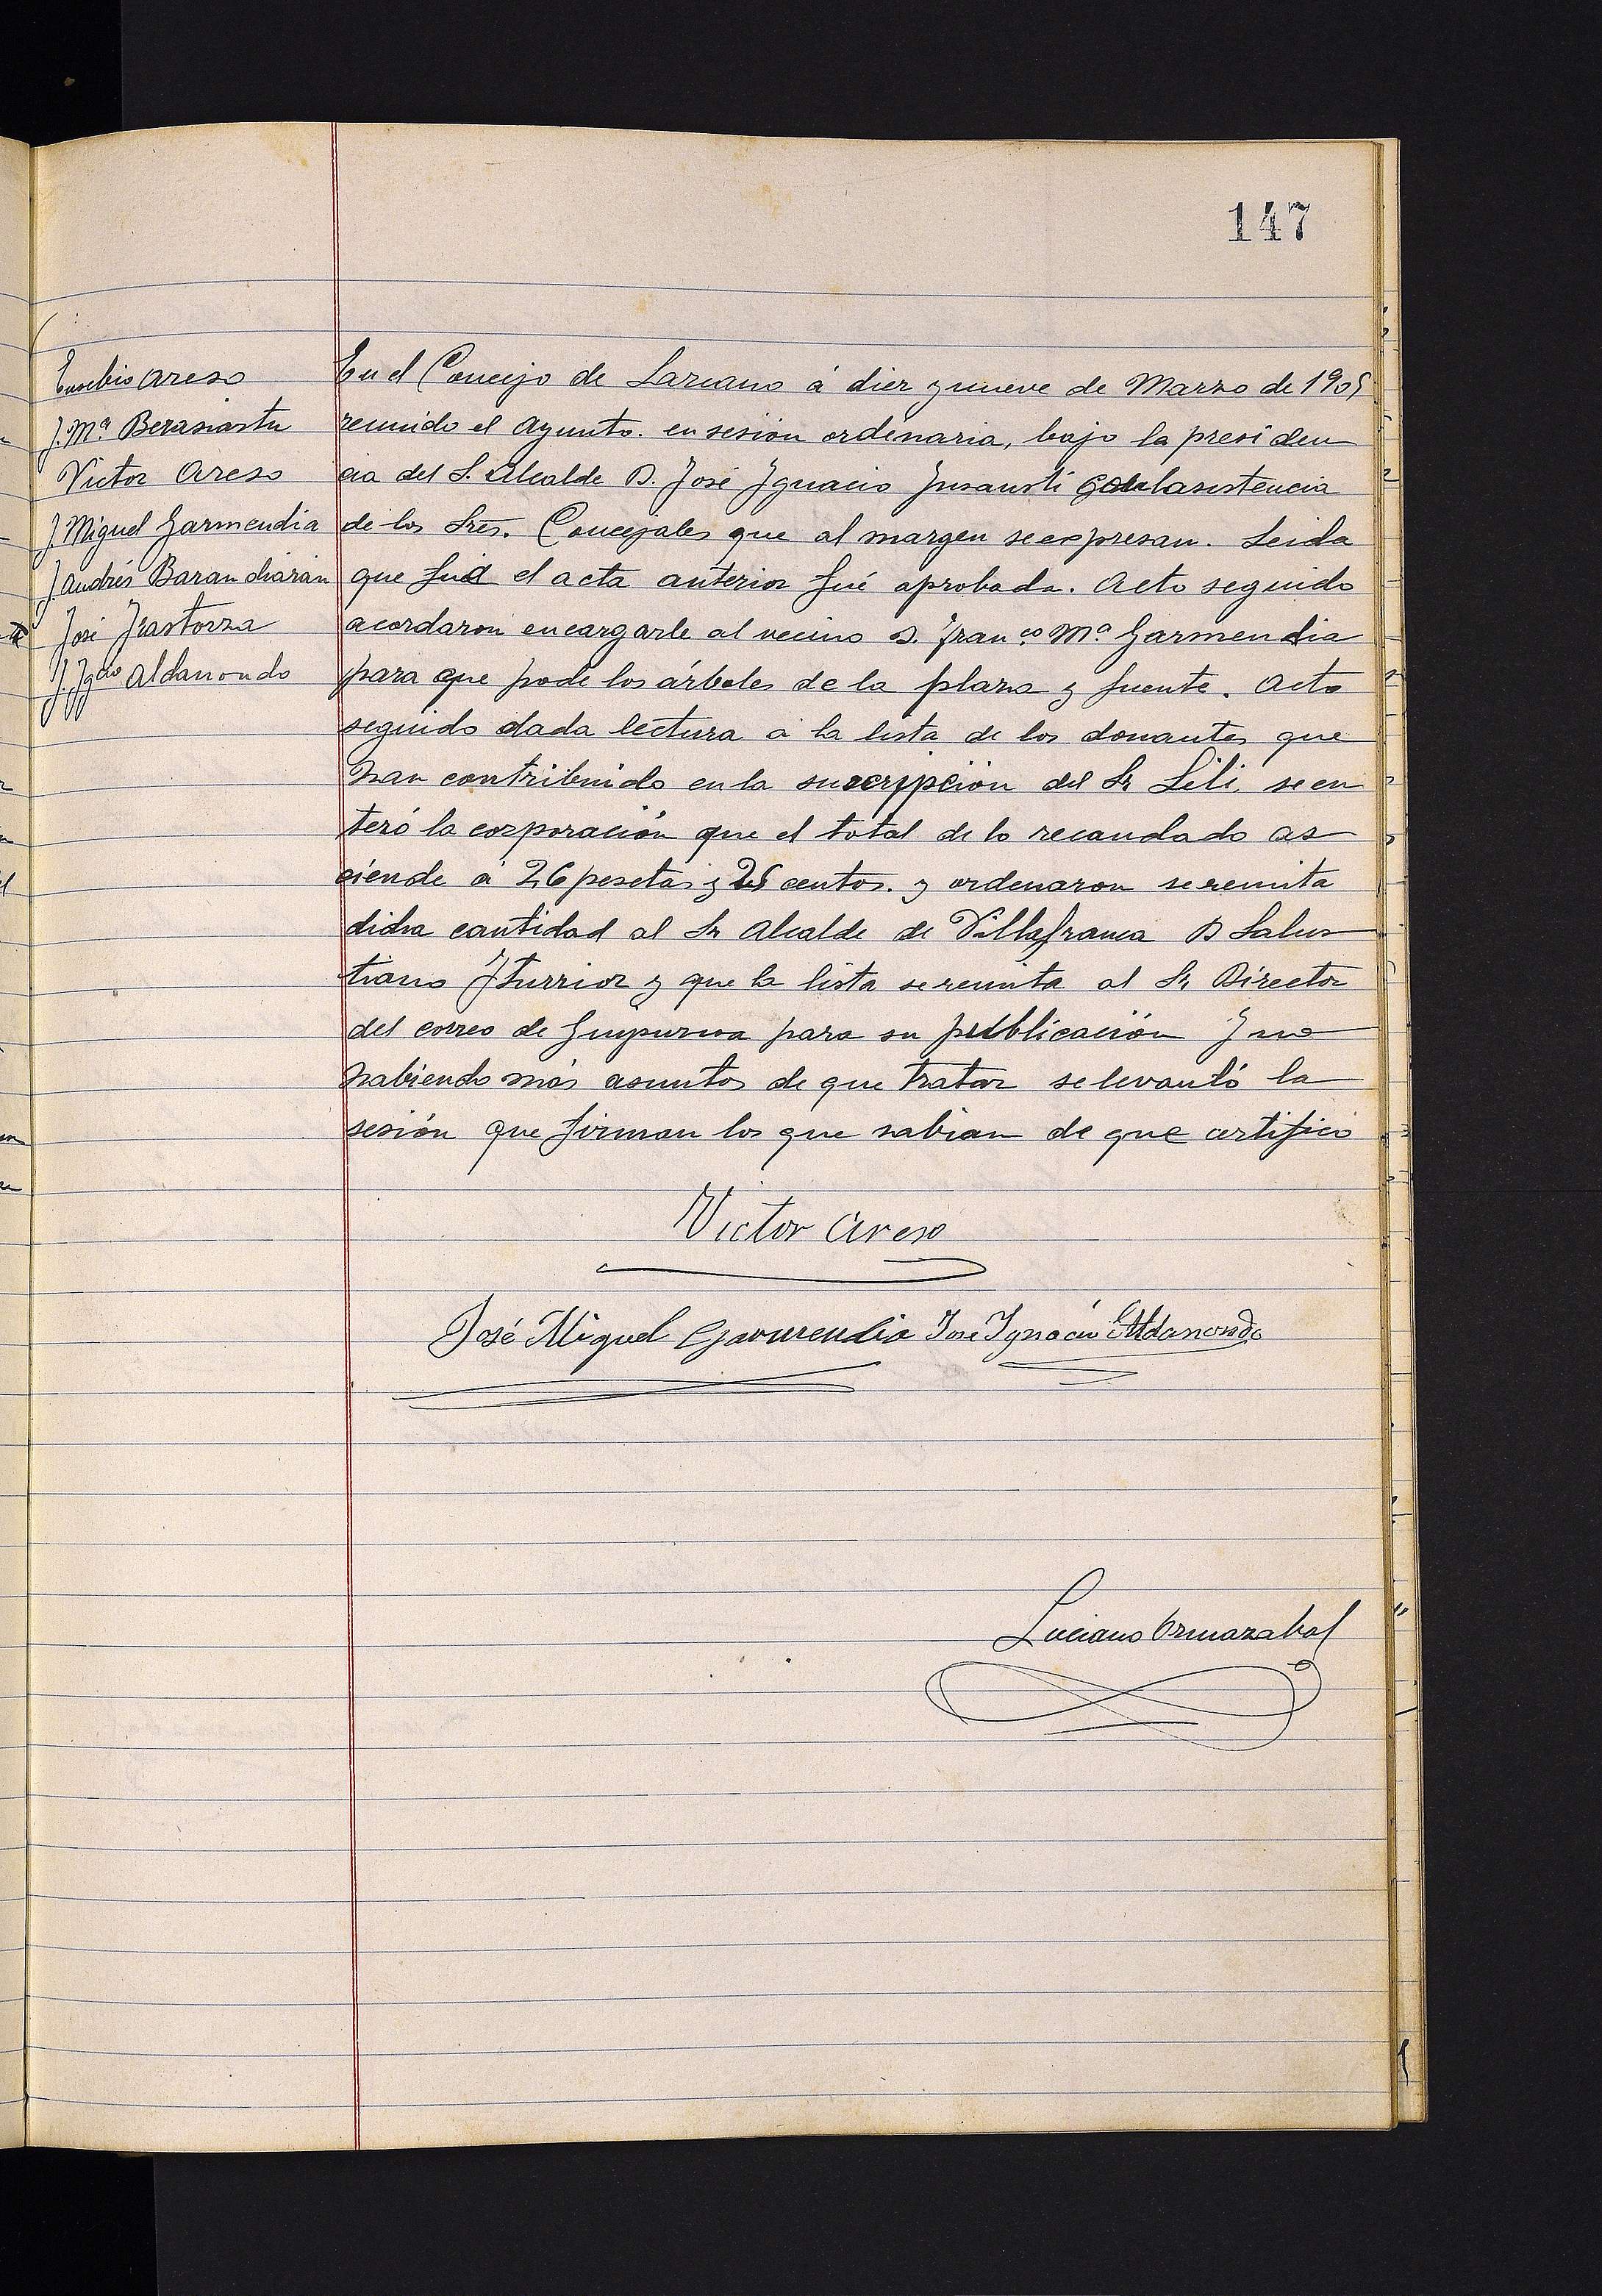 147
Eusebio Areso
J. Mª. Berasiartu
Victor Areso
J. Miguel Garmendia
J. Andrés Barandiarán
José Irastorza
J. Igcio Aldanondo
En el Concejo de Lazcano á diez y nueve de Marzo de 1905
reunido el Ayunto. en sesión ordenaria, bajo la presiden
cia del S. Alcalde D. José Ignacio Insausti con la asistencia
de los Sres. Concejales que al margen se expresan. Leida
que fué el acta anterior fué aprobada. Acto seguido
acordaron encargarle al vecino D. Franco. Mª Garmendia
para que pode los árboles de la plaza y fuente. Acto
seguido dada lectura á la lista de los donantes que
han contribuido en la suscripción del Sr. Lili, se en
teró la corporación que el total de lo recaudado as
ciende á 26 pesetas y 25 centos. y ordenaron se remita
dicha cantidad al Sr Alcalde de Villafranca D Salus
tiano Iturrioz y que la lista se remita al Sr. Director
del correo de Guipuzcoa para su publicación Y no
habiendo más asuntos de que tratar se levantó la
sesión que firman los que sabian de que certifico
Victor Areso
José Miguel Garmendia José Ignacio Aldanondo
Luciano Ormazabal